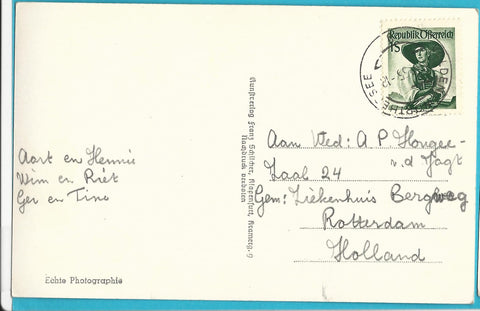 Aart en Hennie
Wim en Riet
Ger en Tine
Echte Photographie
Kunstverlag Franz Schilcher, Klagenfurt, Kramerg. 9
Nachdruck verboten
Republik Österreich
1S
SEE
Aan Wed: A P Hongee-
v.d Jagt
Zaal 24
Gem: Ziekenhuis Bergweg
Rotterdam
Holland